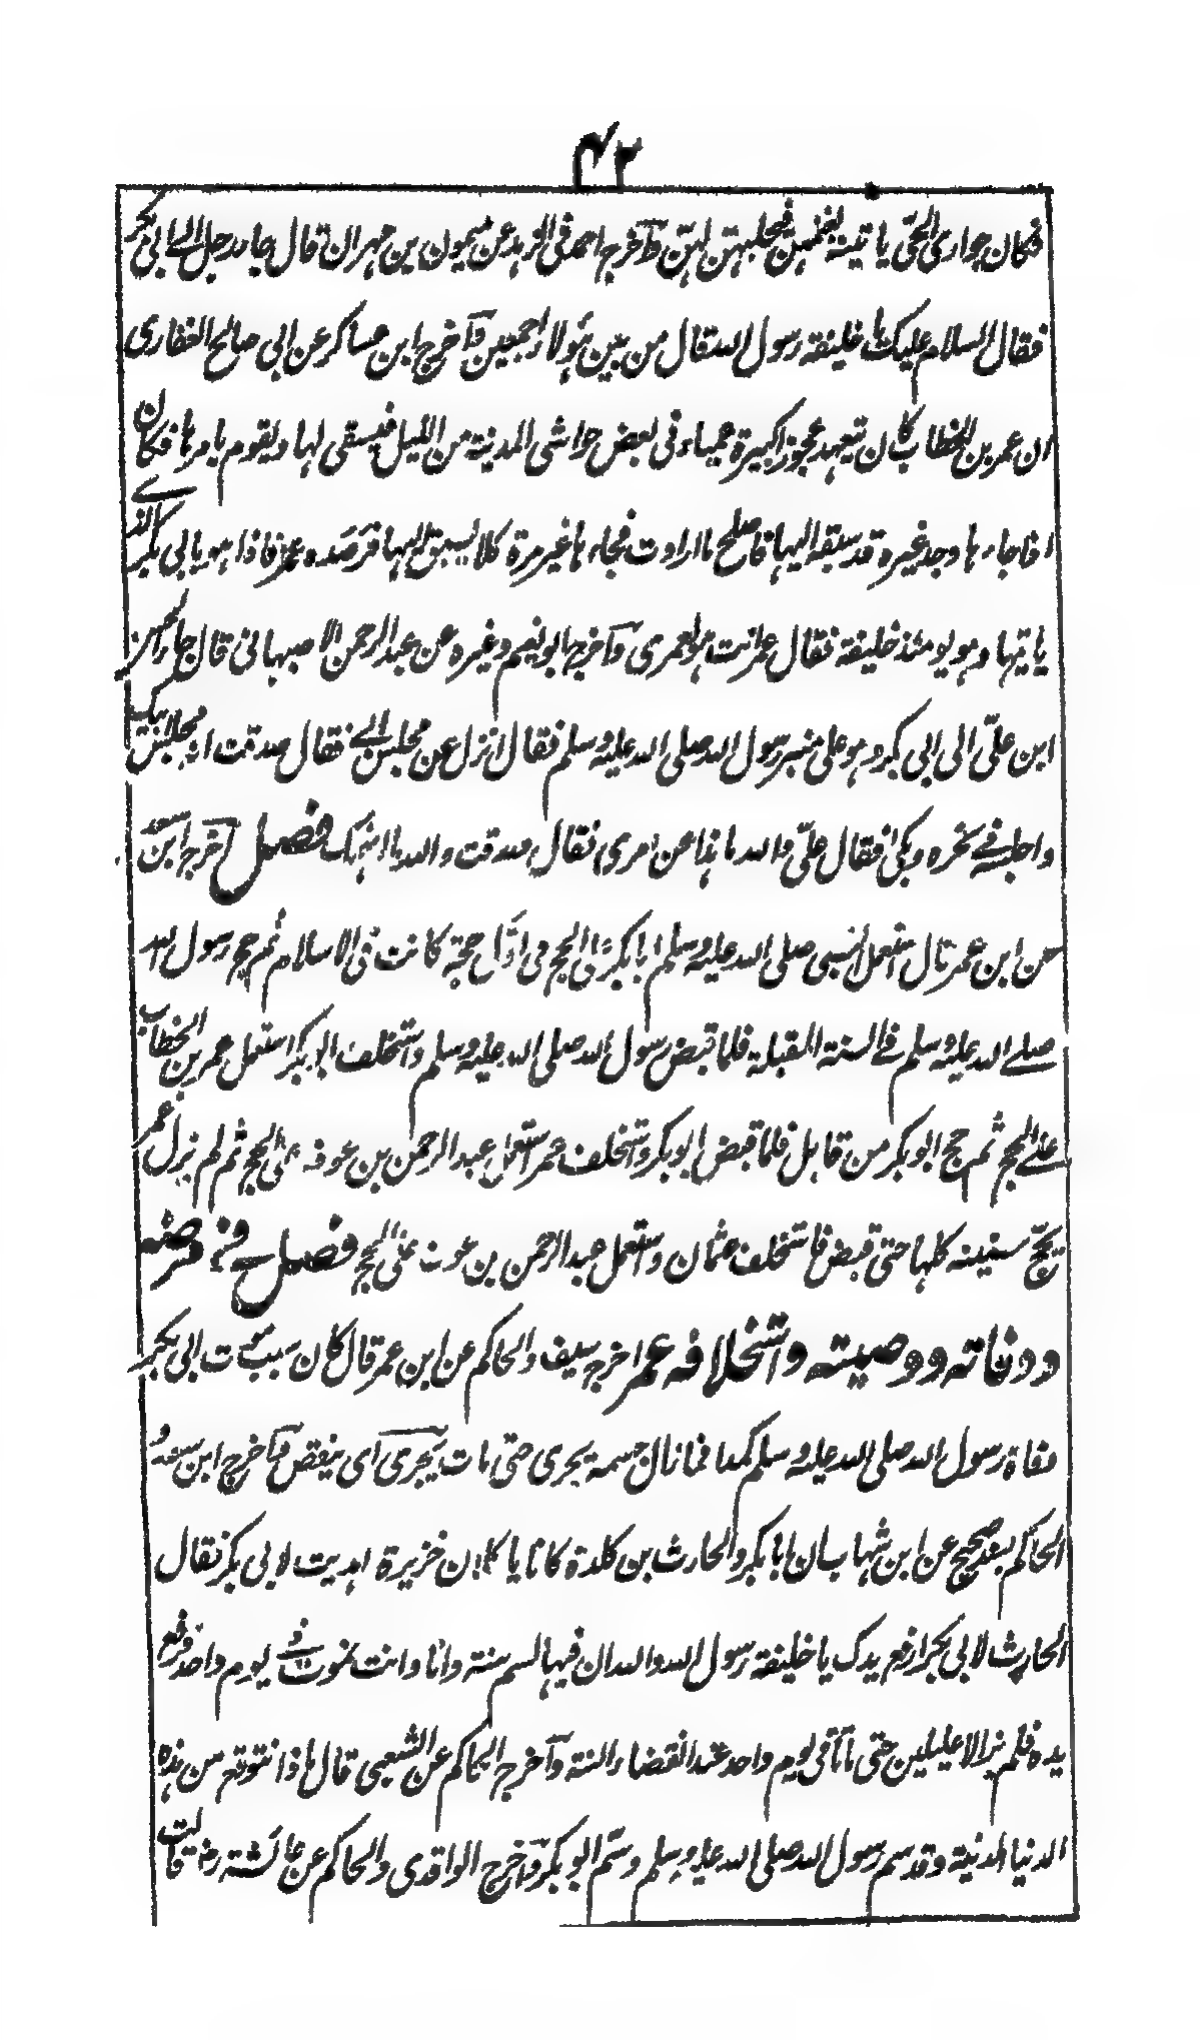 ۴۲
فكان جوارى الحى ياتينه بغنمهن فيحلبهن لهن وآخرج احمد فى الزهد عن ميمون بن مهران قال جاء رجل الى ابى بكر
فقال السلام عليك يا خليفة رسول الله قال من بين هؤلاء اجمعين وآخرج ابن عساكر عن ابى صالح الغفارى
ان عمر بن الخطاب كان يتعهد عجوزا كبيرة عمياء فى بعض حواشى المدينة من الليل فيستقى لها ويقوم بامرها فكان
اذا جاءها وجد غيره قد سبقه اليها فاصلح ما ارادت فجاءها غير مرة كلا يسبق اليها فرصده عمر فاذا هو بابى بكر الذى
ياتيها وهو يومئذ خليفة فقال عمر انت هو لعمرى وآخرج ابو نعيم وغيره عن عبد الرحمن الاصبهانى قال جاء الحسن
ابن على الى ابى بكر وهو على منبر رسول الله صلى الله عليه وسلم فقال انزل عن مجلس ابى فقال صدقت انه مجلس ابيك
واجلسه فى حجره وبكى فقال على والله ما هذا عن امرى فقال صدقت والله ما اتهمك فصل آخرج ابن سعد
عن ابن عمر قال استعمل النبى صلى الله عليه وسلم ابا بكر على الحج فى اول حجة كانت فى الاسلام ثم حج رسول الله
صلى الله عليه وسلم فى السنة المقبلة فلما قبض رسول الله صلى الله عليه وسلم واستخلف ابو بكر استعمل عمر بن الخطاب
على الحج ثم حج ابو بكر من قابل فلما قبض ابو بكر واستخلف عمر استعمل عبد الرحمن بن عوف على الحج ثم لم يزل عمر
يحج سنينه كلها حتى قبض فاستخلف عثمان واستعمل عبد الرحمن بن عوف على الحج فصل فى مرضه
ووفاته ووصيته واستخلافه عمر اخرج سيف والحاكم عن ابن عمر قال كان سبب موت ابى بكر
وفاة رسول الله صلى الله عليه وسلم كمدا فما زال جسمه يجرى حتى مات يجرى اى ينقص وآخرج ابن سعد و
الحاكم بسند صحيح عن ابن شهاب ان ابا بكر والحارث بن كلدة كانا ياكلان خزيرة اهديت لابى بكر فقال
الحارث لابى بكر ارفع يدك يا خليفة رسول الله والله ان فيها لسم سنة وانا وانت نموت فى يوم واحد فرفع
يده فلم يزالا عليلين حتى ماتا فى يوم واحد عند انقضاء السنة وآخرج الحاكم عن الشعبى قال ماذا نتوقع من هذه
الدنيا الدنية وقد سم رسول الله صلى الله عليه وسلم وسم ابو بكر وآخرج الواقدى والحاكم عن عائشة رض قالت